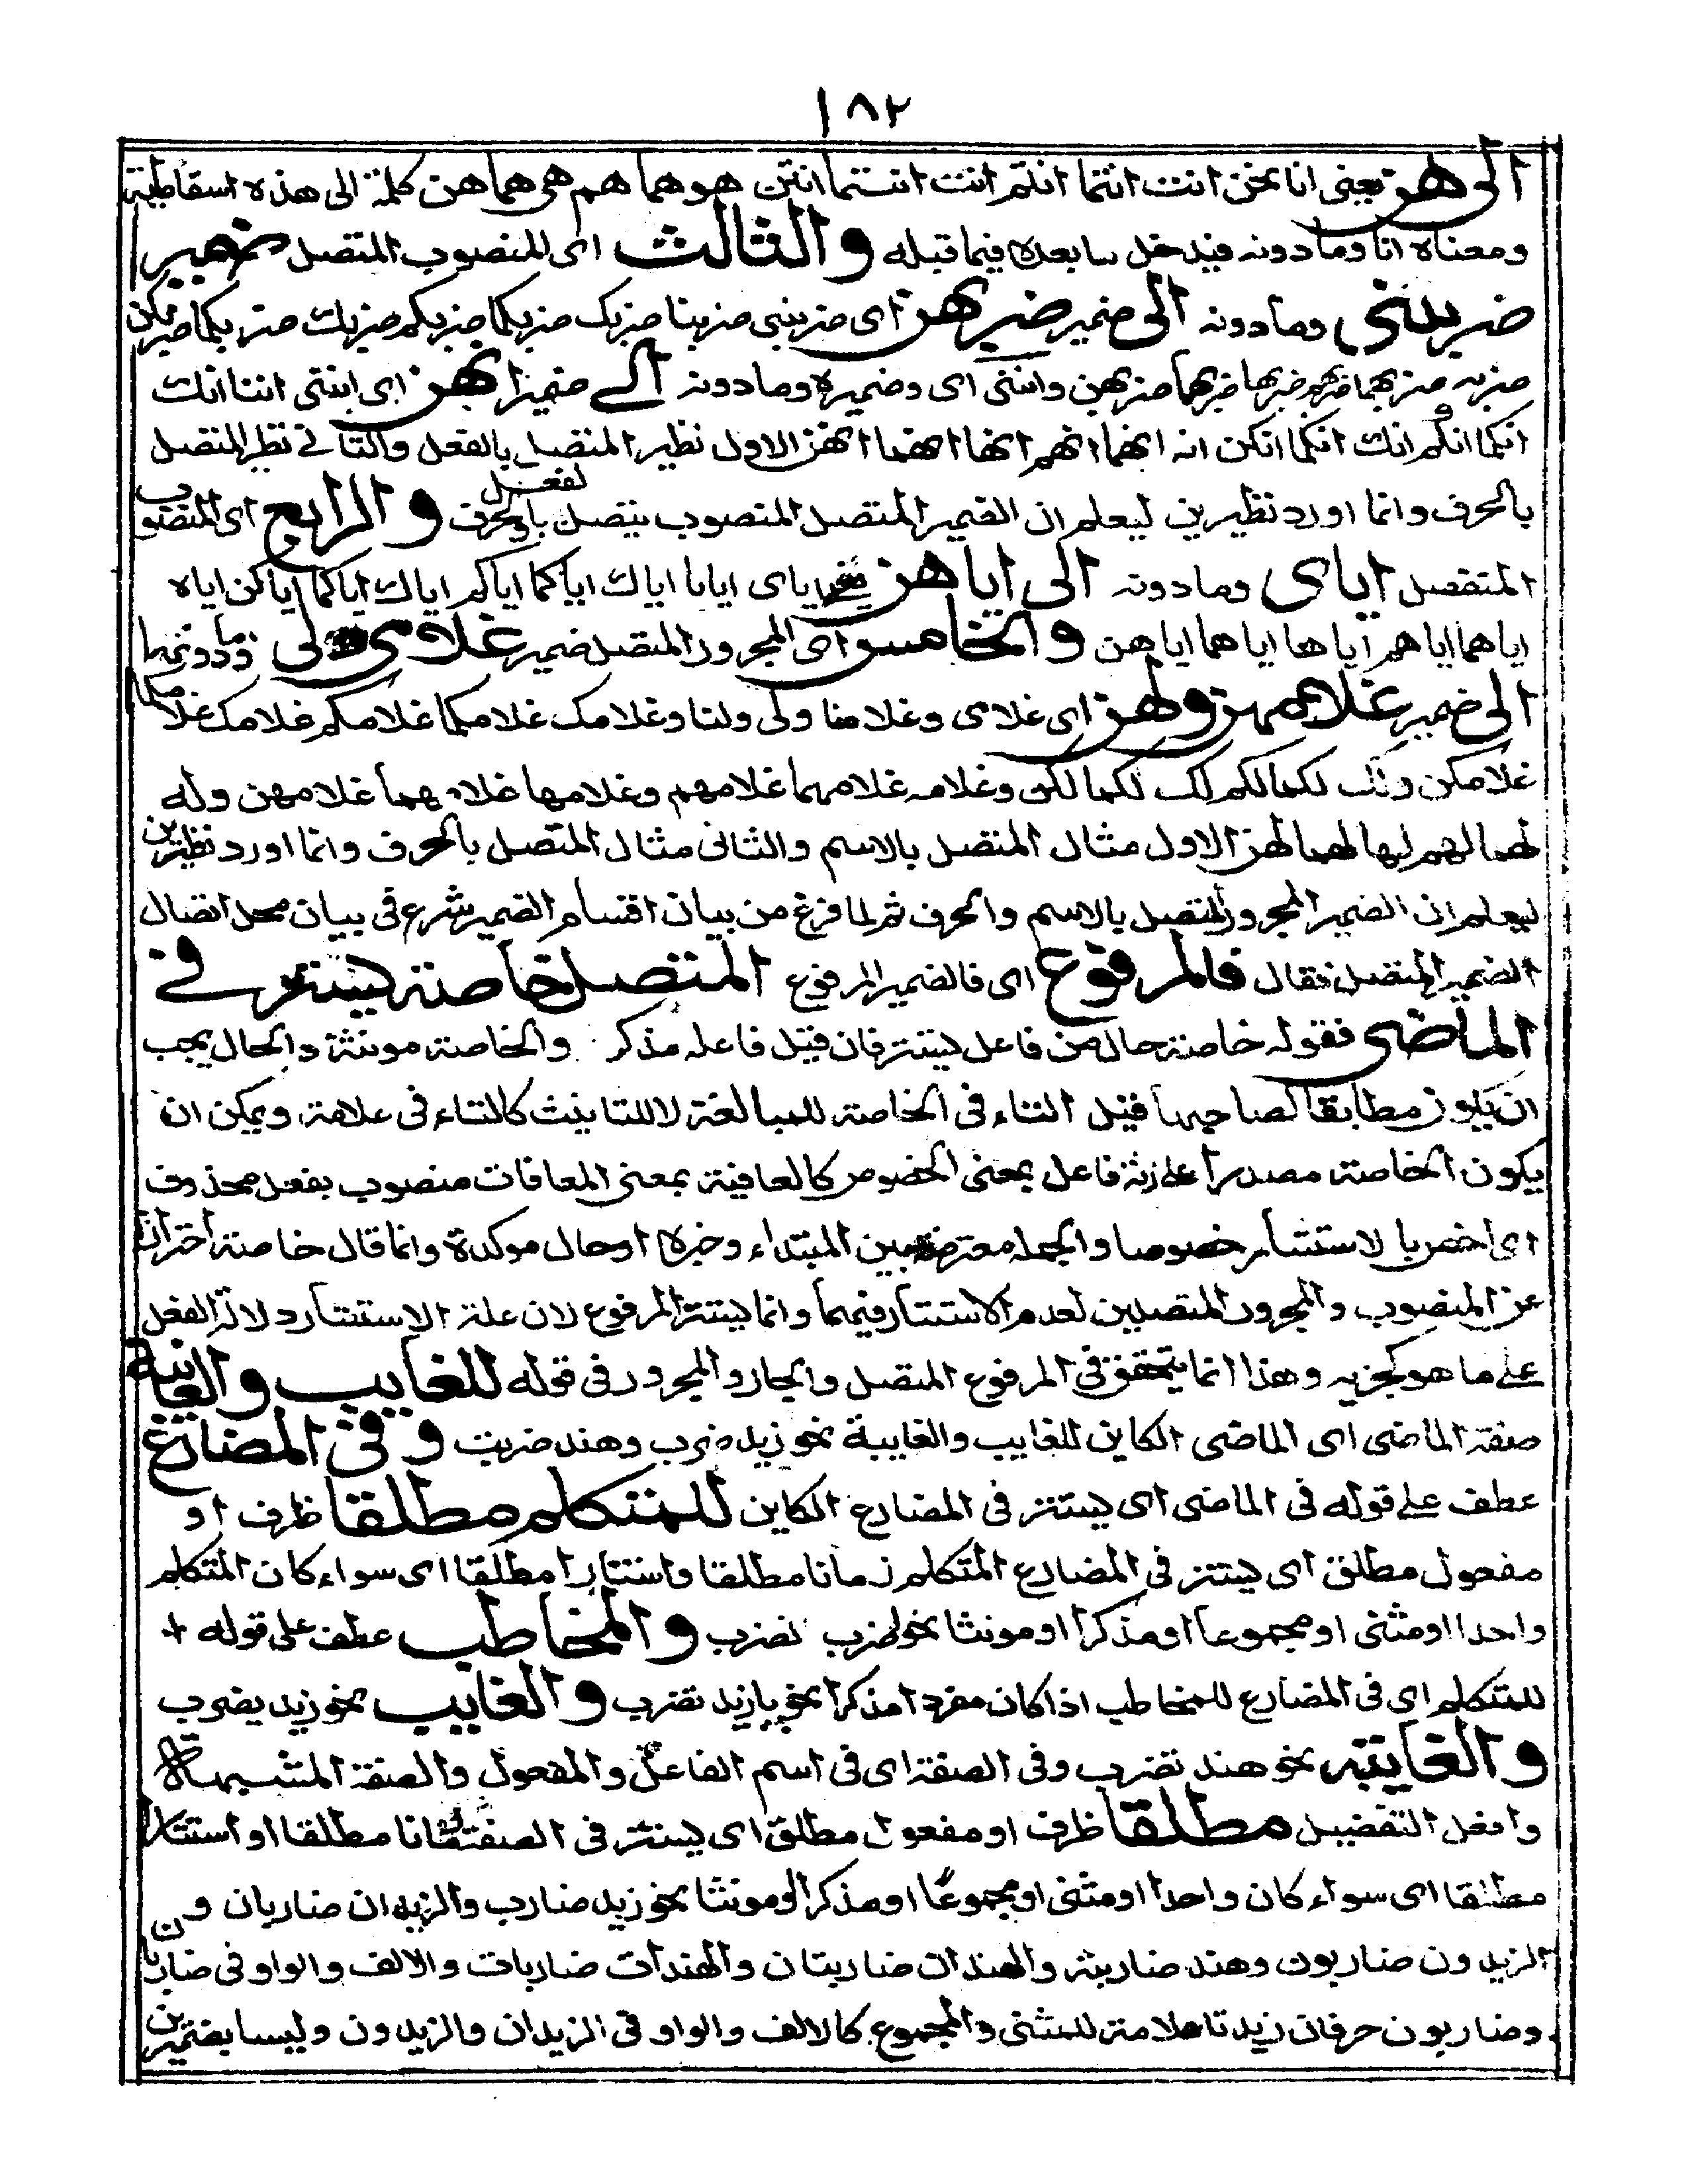 ١٨٢
الى هن يعنى انا نحن انت انتما انتم انت انتما انتن هو هما هم هى هما هن كلمة الى هذه اسقاطية
ومعناه انا وما دونه فيدخل ما بعده فيما قبله والثالث اى المنصوب المتصل ضمير
ضربنى وما دونه الى ضمير ضربهن اى ضربنى ضربنا ضربك ضربكما ضربكم ضربك ضربكما ضربكن
ضربه ضربهما ضربهم ضربها ضربهما ضربهن واننى اى وضميره وما دونه الى ضمير انهن اى اننى اننا انك
انكما انكم انك انكما انكن انه انهما انهم انها انهما انهن الاول نظير المتصل بالفعل والثانى نظير المتصل
بالحرف وانما اورد نظيرين ليعلم ان الضمير المتصل المنصوب يتصل بالفعل والحرف والرابع اى المنصوب
المنفصل اياى وما دونه الى اياهن اياى ايانا اياك اياكما اياكم اياك اياكما اياكن اياه
اياهما اياهم اياها اياهما اياهن والخامس اى المجرور المتصل ضمير غلامى ولى وما دونهما
الى ضمير غلامهن ولهن اى غلامى وغلامنا ولى ولنا وغلامك غلامكما غلامكم غلامك غلامكما
غلامكن ولك لكما لكم لك لكما لكن وغلامه غلامهما غلامهم وغلامها غلامهما غلامهن وله
لهما لهم لها لهما لهن الاول مثال المتصل بالاسم والثانى مثال المتصل بالحرف وانما اورد نظيرين
ليعلم ان الضمير المجرور المتصل بالاسم والحرف ثم لما فرغ من بيان اقسام الضمير شرع فى بيان محل اتصال
الضمير المتصل فقال فالمرفوع اى فالضمير المرفوع المتصل خاصة يستتر فى
الماضى فقوله خاصة حال من فاعل يستتر فان قيل فاعله مذكر والخاصة مونثة والحال يجب
ان يكون مطابقا لصاحبها قيل التاء فى الخاصة للمبالغة لا للتانيث كالتاء فى علامة ويمكن ان
يكون الخاصة مصدرا على زنة فاعل بمعنى الخصوص كالعافية بمعنى المعافات منصوب بفعل محذوف
اى اخص بالاستتار خصوصا والجملة معترضة بين المبتداء وخبره او حال موكدة وانما قال خاصة احترازا
عن المنصوب والمجرور المتصلين لعدم الاستتار فيهما وانما يستتر المرفوع لان علة الاستتار دلالة الفعل
على ما هو كجزيه وهذا انما يتحقق فى المرفوع المتصل والجار والمجرور فى قوله للغايب والغايبة
صفة الماضى اى الماضى الكاين للغايب والغايبة نحو زيد ضرب وهند ضربت وفى المضارع
عطف على قوله فى الماضى اى يستتر فى المضارع الكاين للمتكلم مطلقا ظرف او
مفعول مطلق اى يستتر فى المضارع المتكلم زمانا مطلقا واستتارا مطلقا اى سواء كان المتكلم
واحدا او مثنى او مجموعا او مذكرا او مونثا نحو اضرب نضرب والمخاطب عطف على قوله
للمتكلم اى فى المضارع للمخاطب اذا كان مفردا مذكرا نحو يا زيد تضرب والغايب نحو زيد يضرب
والغايبة نحو هند تضرب وفى الصفة اى فى اسم الفاعل والمفعول والصفة المشبهة
وافعل التفضيل مطلقا ظرف او مفعول مطلق اى يستتر فى الصفة زمانا مطلقا او استتارا
مطلقا اى سواء كان واحدا او مثنى او مجموعا او مذكرا او مونثا نحو زيد ضارب والزيدان ضاربان و
الزيدون ضاربون وهند ضاربة والهندان ضاربتان والهندات ضاربات والالف والواو فى ضاربان
وضاربون حرفان زيدتا علامة للمثنى والمجموع كالالف والواو فى الزيدان والزيدون وليسا بضميرين